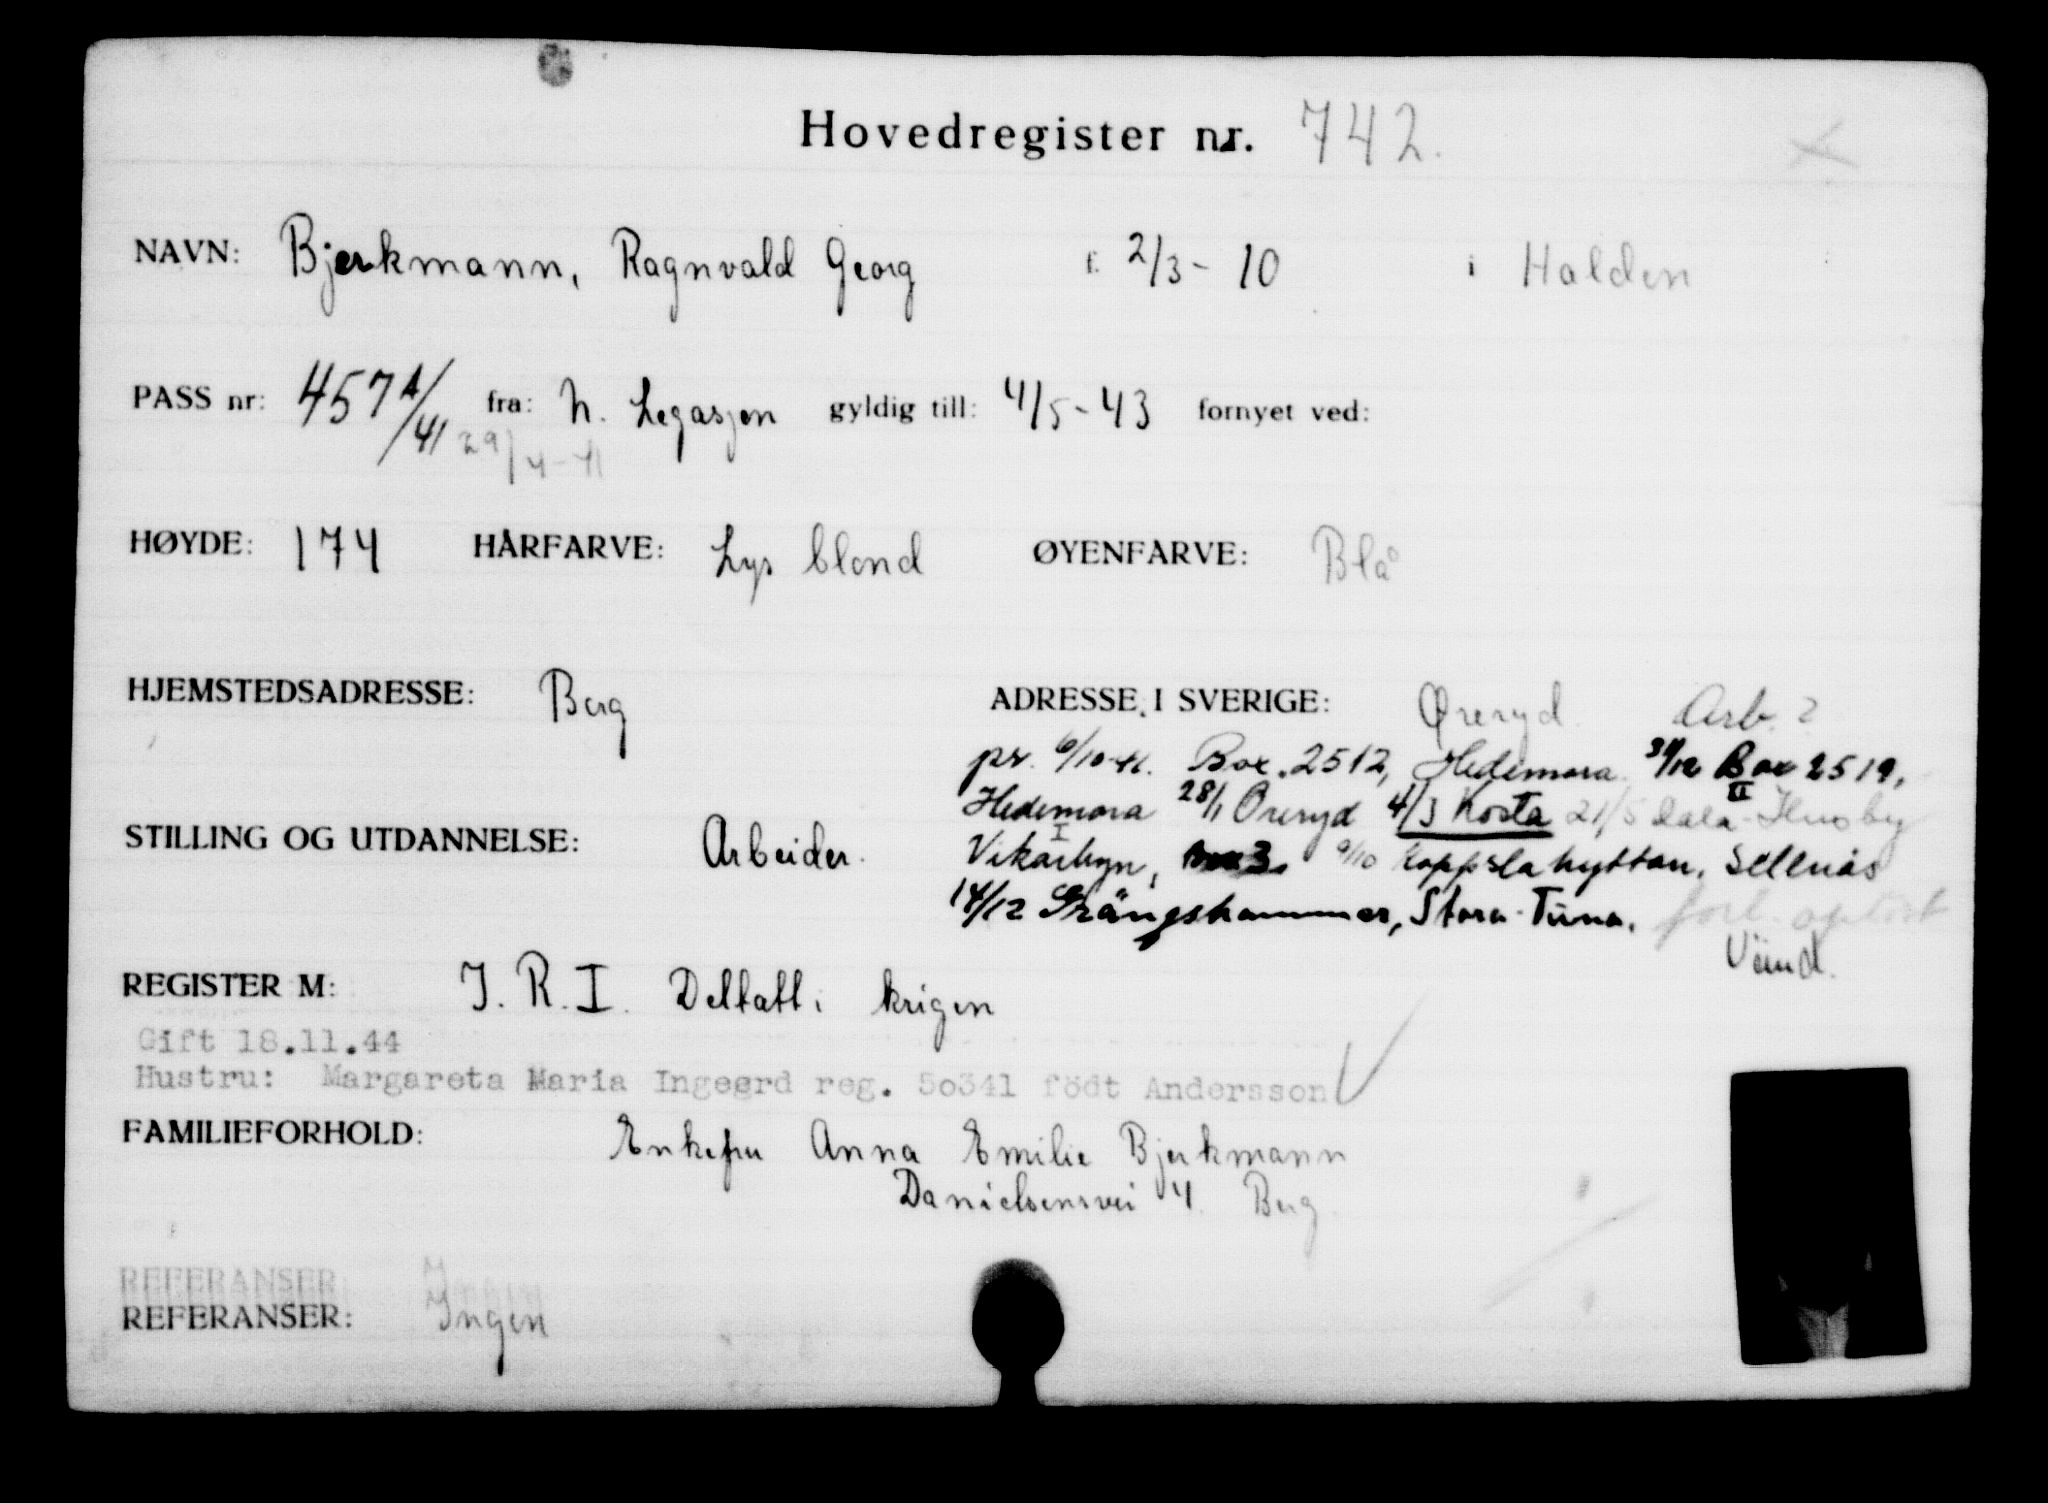 Hovedregister nr. 742.
NAVN: Bjerkmann, Ragnvald Georg f. 2/3 - 10 i Halden
PASS nr: 457 A/41 fra: N. Legasjon gyldig till: 4/5 - 43 fornyet ved:
29/4 - 41
HØYDE: 174 HÅRFARVE: Lys blond ØYENFARVE: Blå
HJEMSTEDSADRESSE: Berg ADRESSE I SVERIGE: Øreryd. Arb.
pr. 6/10-41. Box. 2512, Hedemora. 31/12 Box 2519,
Hedemora 28/1 Öreryd 4/3 Kosta 21/5 Dala-Husby
STILLING OG UTDANNELSE: Arbeider. Vikarbyn, 9/10 Koppslahyttan, Sellnäs
14/12 Grängshammer, Stora-Tuna.
REGISTER M: J. R. I. Deltatt i krigen
Gift 18.11.44
Hustru: Margareta Maria Ingegrd reg. 50341 födt Andersson
FAMILIEFORHOLD: Enkefru Anna Emilie Bjerkmann
Danielsensvei 4. Berg.
REFERANSER
REFERANSER: Ingen